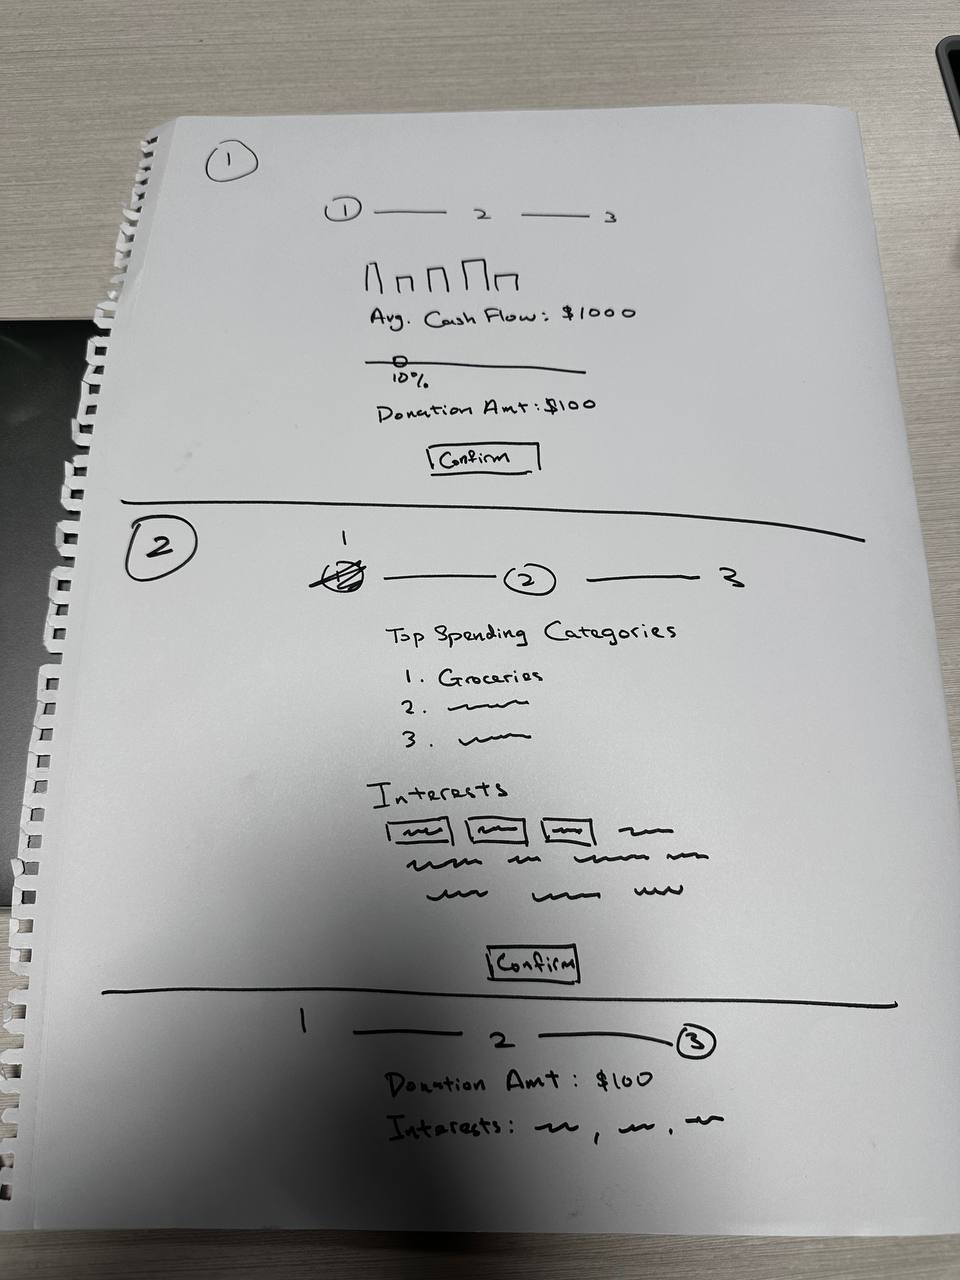 1
1 2 3
Avg. Cash Flow: $1000
10%
Donation Amt: $100
Confirm
2
1
2 3
Top Spending Categories
1. Groceries
2.
3.
Interests
Confirm
1 2 3
Donation Amt: $100
Interests: , ,